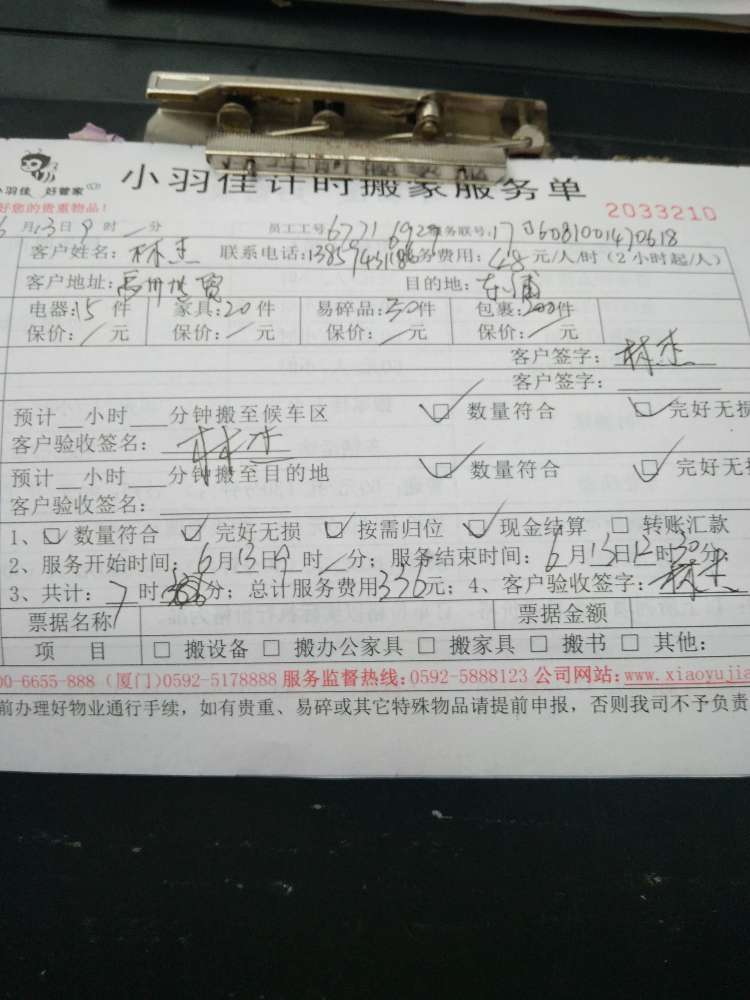 小羽佳 好管家
小羽佳计时搬家服务单
好您的贵重物品!
2033210
6月13日9时/分 员工工号6771 6929 服务联号:1706081001470618
客户姓名:林杰 联系电话:13859743118 服务费用:48元/人/时(2小时起/人)
客户地址: 目的地:东浦
电器:15件 家具:20件 易碎品:30件 包裹:200件
保价:/元 保价:/元 保价:/元 保价:/元
客户签字:林杰
客户签字:
预计__小时___分钟搬至候车区 ☑ 数量符合 ☑ 完好无损
客户验收签名:林杰
预计__小时___分钟搬至目的地 ☑ 数量符合 ☑ 完好无
客户验收签名:
1、☑ 数量符合 ☑ 完好无损 ☑ 按需归位 ☑ 现金结算 □ 转账汇款
2、服务开始时间:6月13日9时/分;服务结束时间:6月13日12时30分;
3、共计:7时分;总计服务费用336元;4、客户验收签字:林杰
票据名称 票据金额
项 目 □ 搬设备 □ 搬办公家具 □ 搬家具 □ 搬书 □ 其他:
00-6655-888 (厦门)0592-5178888 服务监督热线:0592-5888123 公司网站:www.xiaoyujia
前办理好物业通行手续,如有贵重、易碎或其它特殊物品请提前申报,否则我司不予负责